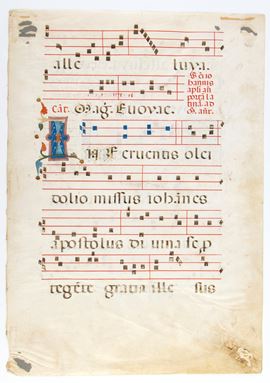 alle luya.
S. io
hannis
apli an
porta la
tina. ad
Mag. Evovae.
In Feruentis olei
dolio missus iohānes
apostolus diuina se p
tegēte gratia ille sus